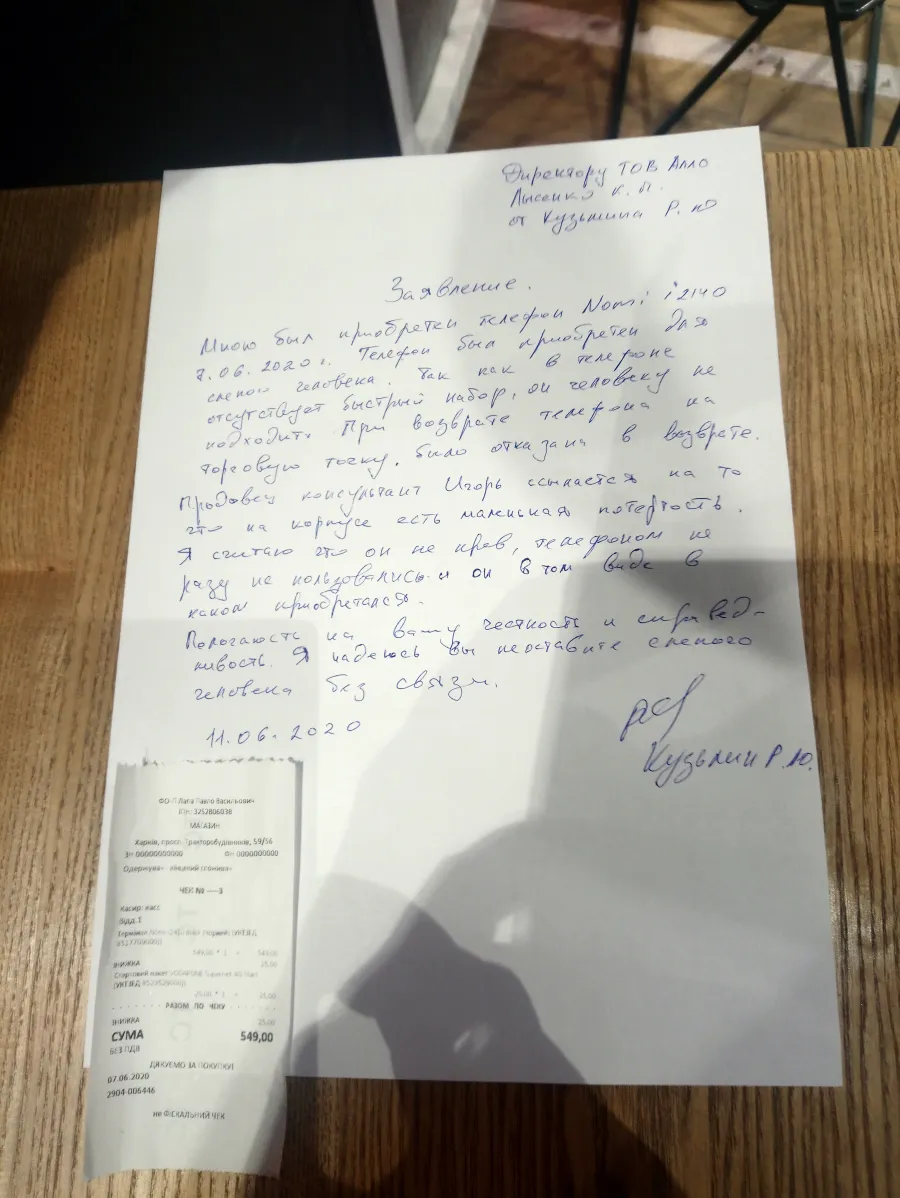 Директору ТОВ Алло
Лысенко К. П.
от Кузьмина Р. Ю
Заявление.
Мною был приобретен телефон Nomi i2140
7.06.2020 г. Телефон был приобретен для
слепого человека. Так как в телефоне
отсутствует быстрый набор, он человеку не
подходит. При возврате телефона на
торговую точку. было отказана в возврате.
Продавец консультант Игорь ссылается на то
что на корпусе есть маленькая потертость.
Я считаю что он не прав, телефоном не
разу не пользовались и он в том виде в
каком приобретался.
Пологаюсть на вашу честность и справед-
ливость. Я надеюсь вы неоставите слепого
человека без связи.
11.06.2020
Кузьмин Р.Ю.
ФО-П Лапа Павло Васильович
ІПН: 3252806038
МАГАЗИН
Харків, просп. Тракторобудівників, 59/56
ЗН 0000000000 ФН 0000000000
Одержувач кінцевий споживач
ЧЕК № ---3
Касир: касс
Відд.1
549,00 * 1 = 549,00
ЗНИЖКА 25,00
Стартовий пакет VODAFONE
25,00 * 1 = 25,00
РАЗОМ ПО ЧЕКУ
ЗНИЖКА 25,00
СУМА 549,00
БЕЗ ПДВ
ДЯКУЄМО ЗА ПОКУПКУ!
07.06.2020
2904-006446
не ФІСКАЛЬНИЙ ЧЕК